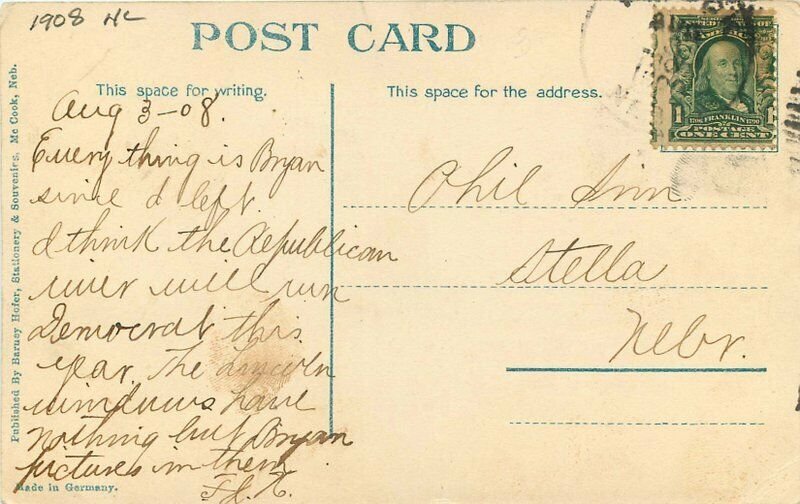 1908 NC
POST CARD
This space for writing.
This space for the address.
Aug 3-08.
Every thing is Bryan
since I left.
I think the Republican
river will run
Democrat this
year. The Lincoln
windows have
nothing but Bryan
pictures in them
Phil Sinn
Stella
Nebr.
Published By Barney Hofer, Stationery & Souvenirs, Mc Cook, Neb.
Made in Germany.
SERIES 1902
UNITED STATES OF
AMERICA
1706 FRANKLIN 1790
POSTAGE
1 ONE CENT 1